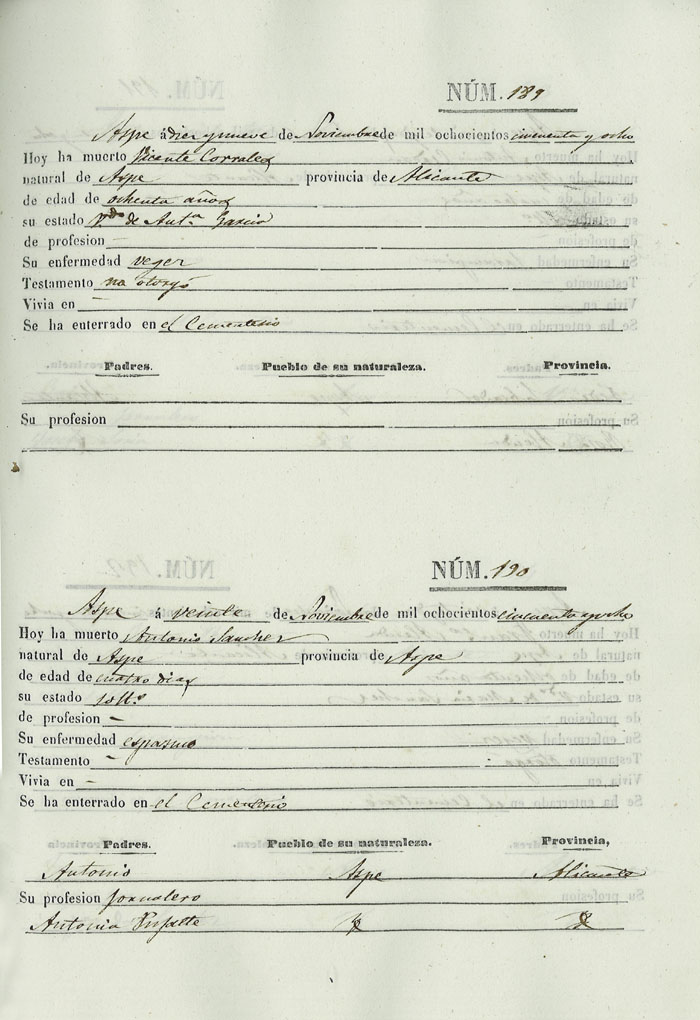 NÚM. 189
Aspe á diez y nueve de Noviembre de mil ochocientos cincuenta y ocho
Hoy ha muerto Vicente Corrales
natural de Aspe provincia de Alicante
de edad de ochenta años
su estado V.do de Ant.a Garcia
de profesion —
Su enfermedad vegez
Testamento no otorgó
Vivia en —
Se ha enterrado en el Cementerio
Padres. Pueblo de su naturaleza. Provincia.
Su profesion
NÚM. 190
Aspe á veinte de Noviembre de mil ochocientos cincuenta y ocho
Hoy ha muerto Antonio Sanchez
natural de Aspe provincia de Aspe
de edad de cuatro dias
su estado solt.o
de profesion —
Su enfermedad espasmo
Testamento —
Vivia en —
Se ha enterrado en el Cementerio
Padres. Pueblo de su naturaleza. Provincia,
Antonio Aspe Alicante
Su profesion jornalero
Antonia